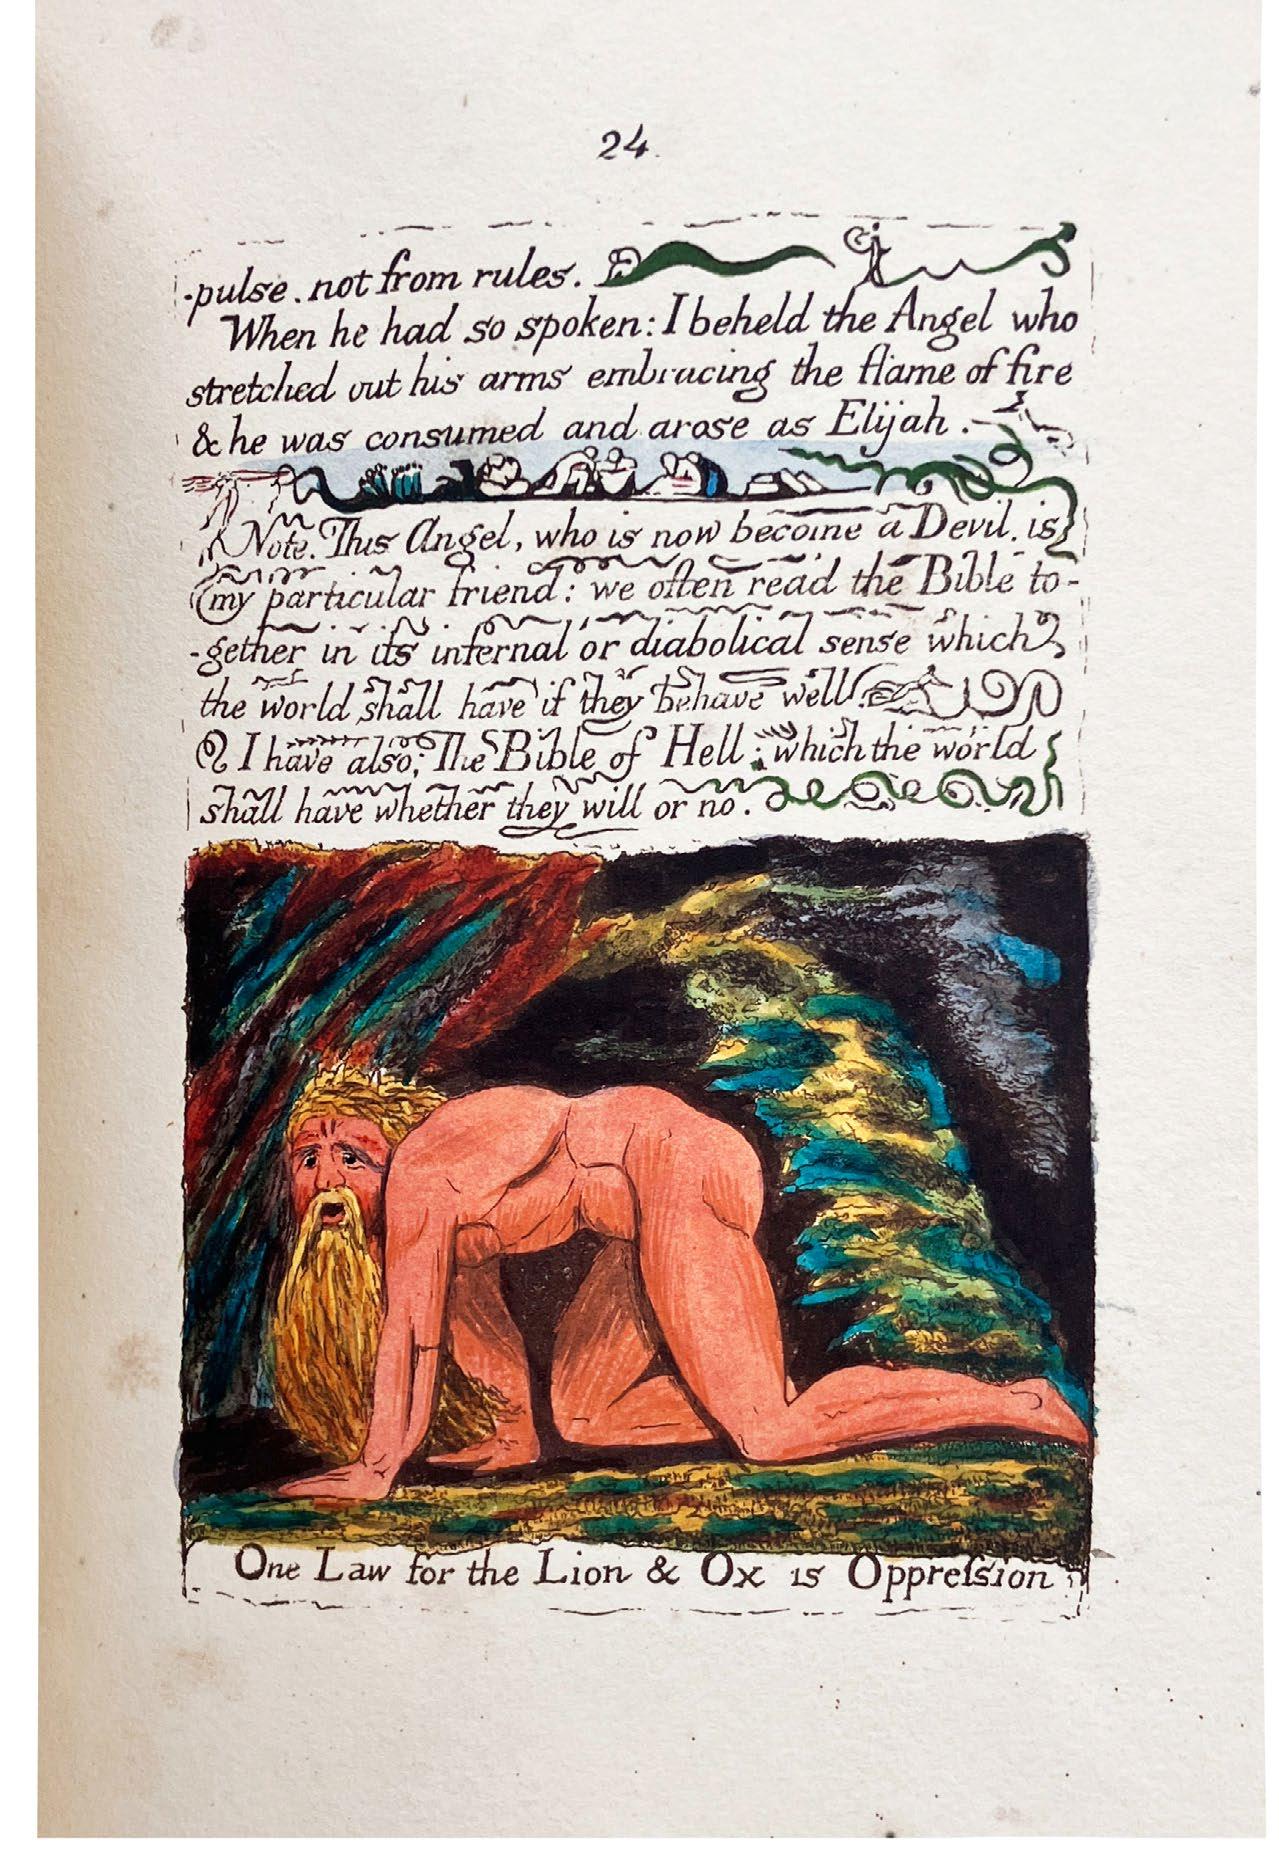 24.
-pulse. not from rules.
When he had so spoken: I beheld the Angel who
stretched out his arms embracing the flame of fire
& he was consumed and arose as Elijah.
Note. This Angel, who is now become a Devil, is
my particular friend: we often read the Bible to-
-gether in its infernal or diabolical sense which
the world shall have if they behave well.
I have also; The Bible of Hell: which the world
shall have whether they will or no.
One Law for the Lion & Ox is Oppreſsion